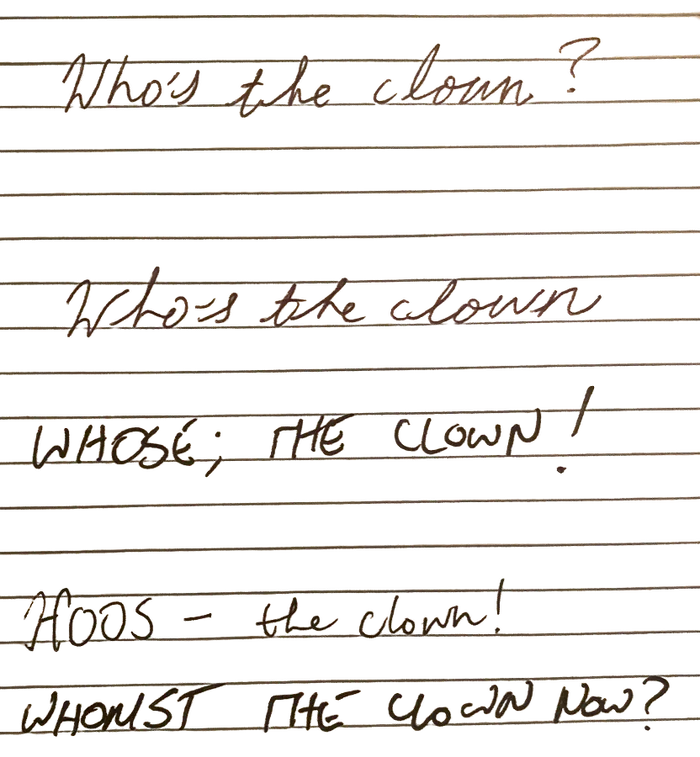 Who's the clown?
Who's the clown
WHOSE; THE CLOWN!
HOOS - the clown!
WHOMST THE CLOWN NOW?